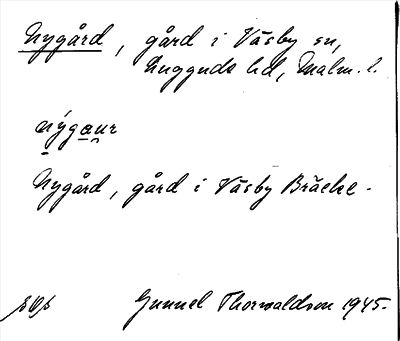 Nygård, gård i Väsby sn,
Lugguds hd, Malm. l.
nýgau̯r
Nygård, gård i Väsby Bräcke.
Gunnel Thorwaldson 1945.